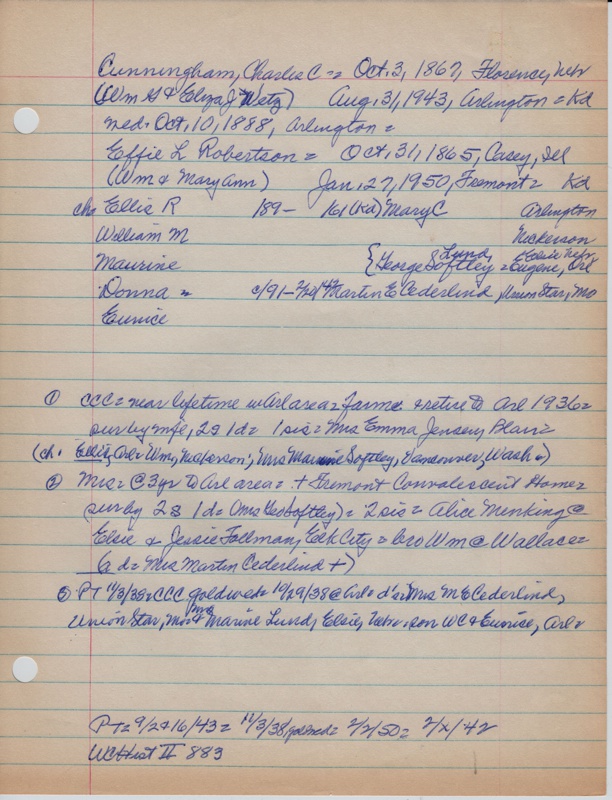 Cunningham, Charles C = Oct. 3, 1867, Florence, Nebr
(Wm H & Eliza J Wetz) Aug. 31, 1943, Arlington = Kd
med. Oct, 10, 1888, Arlington =
Effie L Robertson = Oct, 31, 1865, Casey, Ill
(Wm & Mary Ann) Jan, 27, 1950, Fremont = Kd
chn Ellis R 189- 161 (Kd) Mary C Arlington
William M Nickerson
Maurine { Lund, Elsie Nebr George Softley = Eugene, Orl
Donna = c/91- Martin E Cederlind, Union Star, Mo
Eunice
① CCC = near lifetime in Arl area = farmed & retire to Arl 1936 =
sur by wife, 2s 1d = 1 sis = Mrs Emma Jensen, Blair =
(ch. Ellis, Arl = Wm, Nickerson; Mrs Maurine Softley, Vancouver, Wash.)
② Mrs = @ 3yr to Arl area = + Fremont Convalescent Home =
(sur by 2s 1d = (Mrs Geo Softley) = 2 sis = Alice Menking @
Elsie & Jessie Follman, Elk City = bro Wm @ Wallace =
(a d = Mrs Martin Cederlind +)
③ PT 11/3/38 = CCC goldwed = 10/29/38 @ Arl = d's: Mrs M E Cederlind,
Union Star, Mo & Mrs Marine Lund, Elsie, Nebr. son WC & Eunice, Arl =
PT = 9/2+16/43 = 11/3/38 goldwed = 2/2/50 = 2/x/42
WC Hist II 883